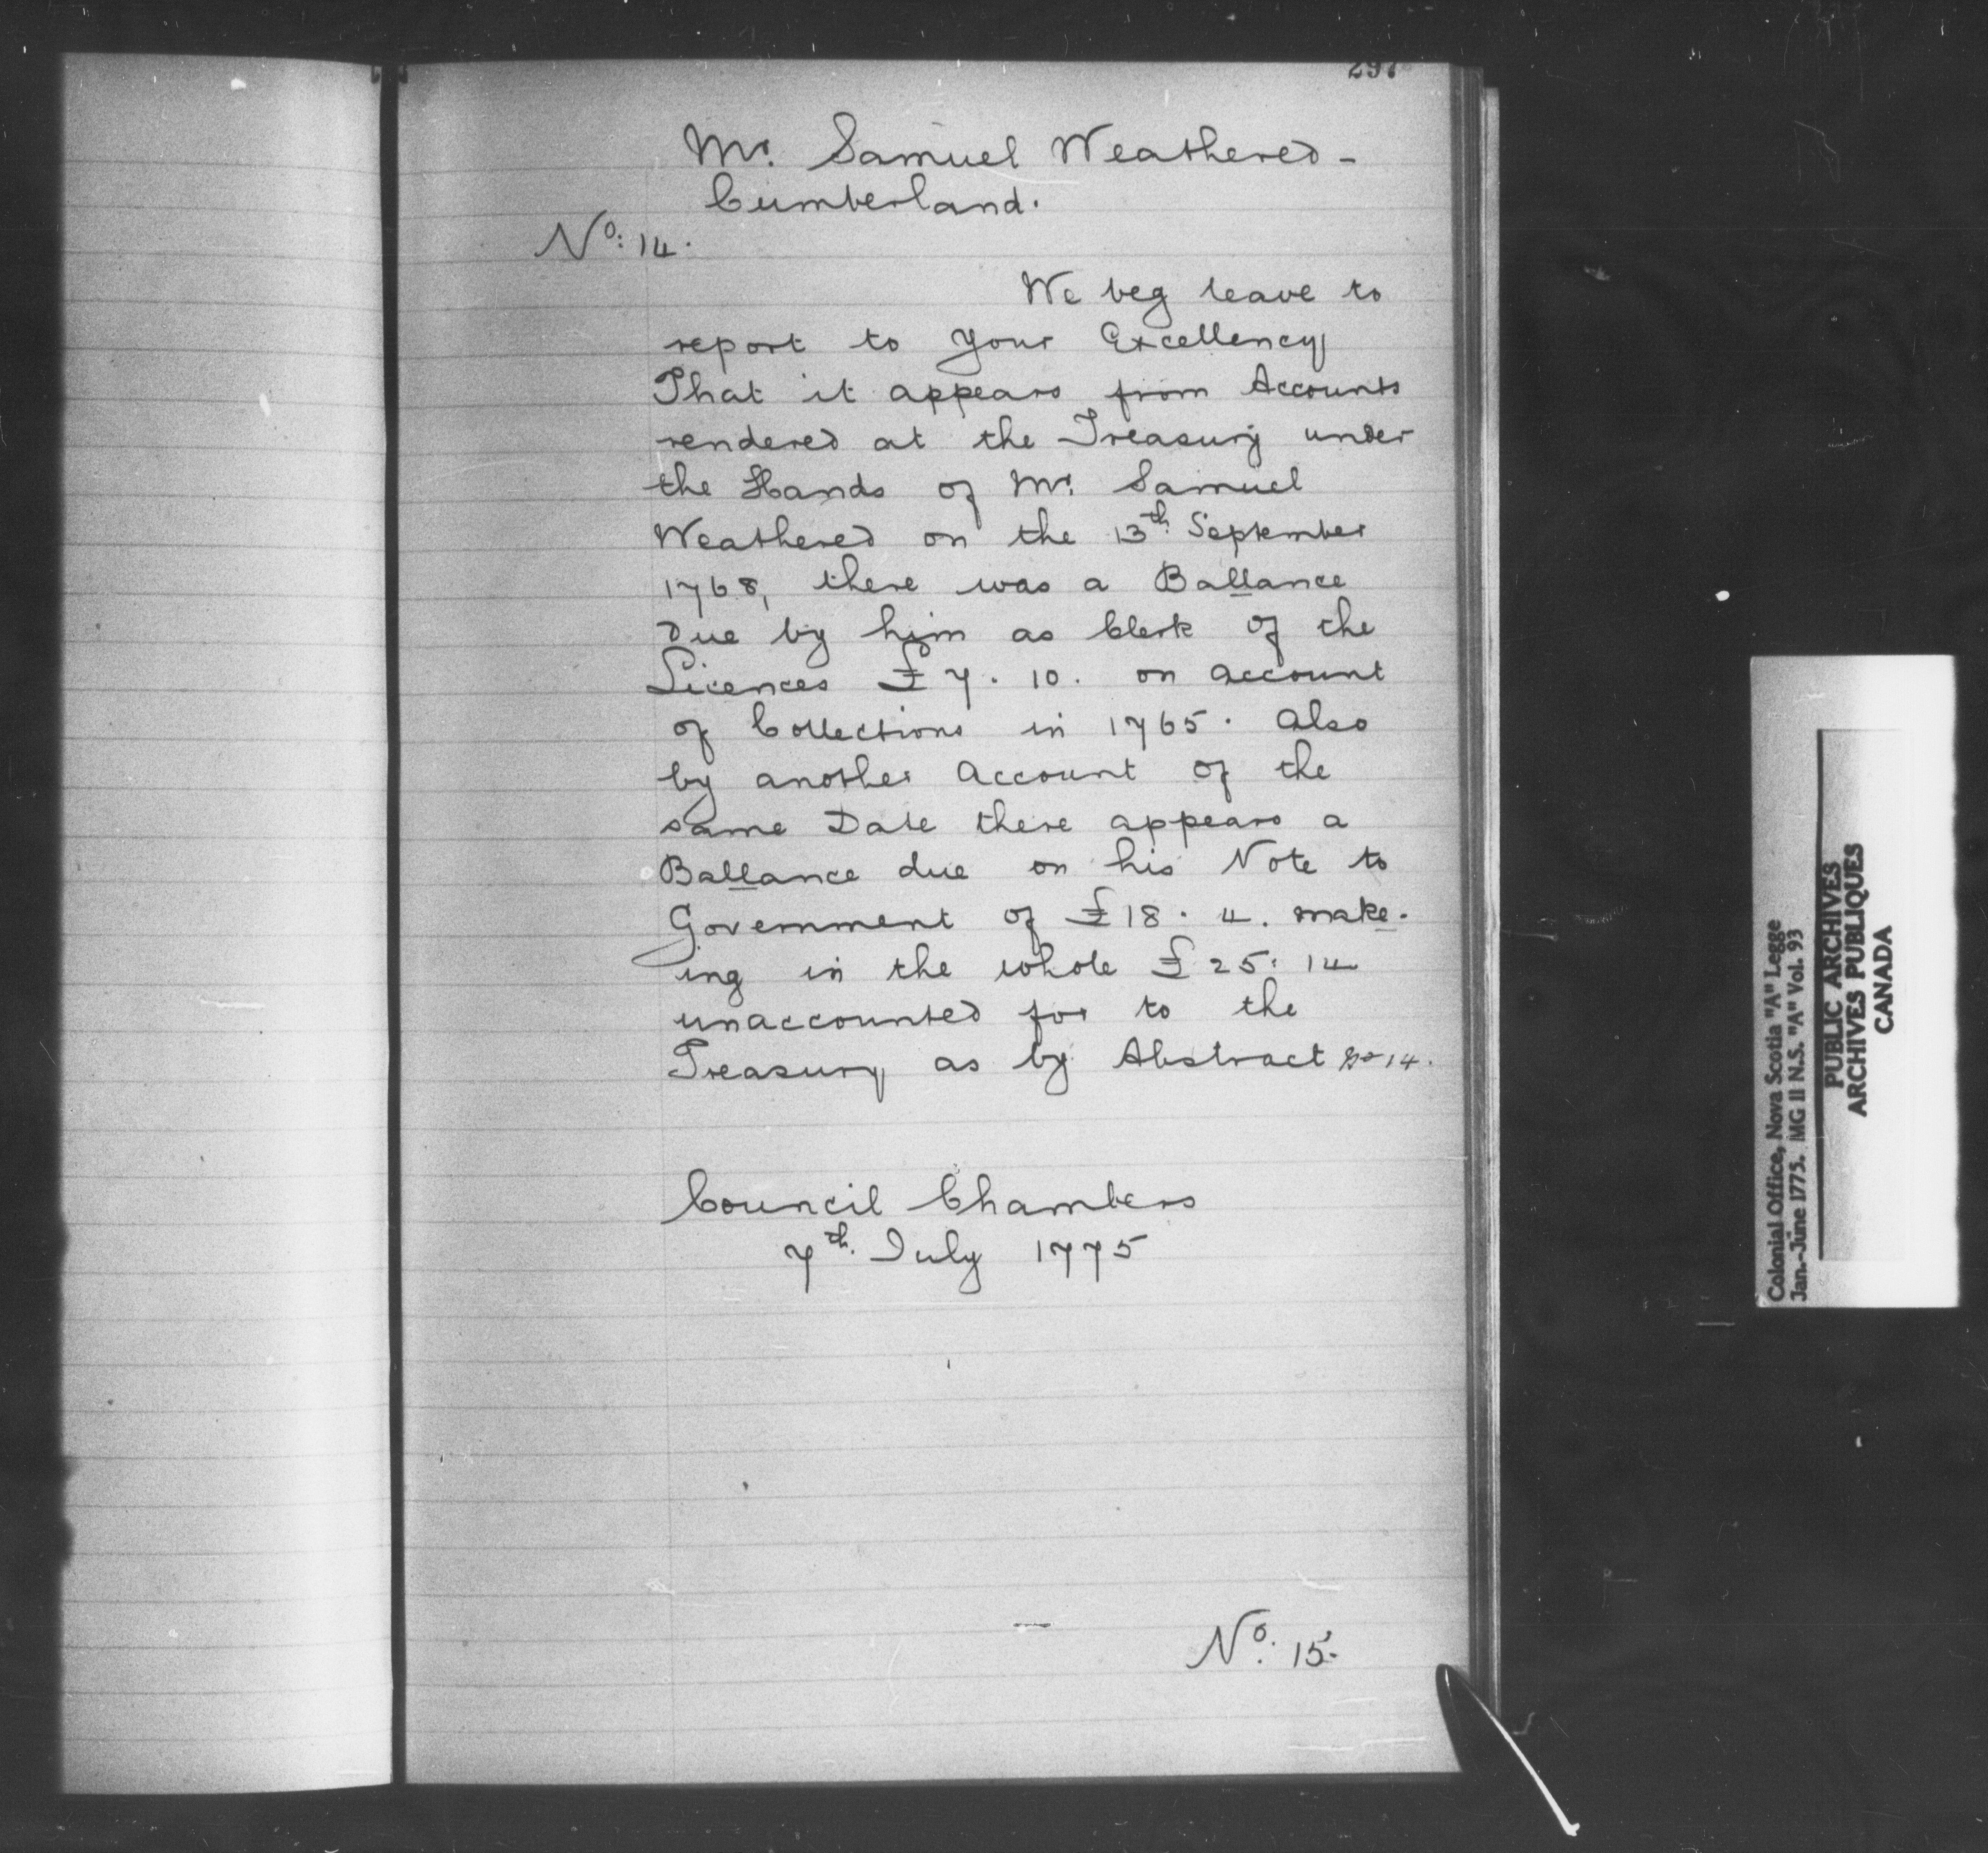 297
Mr. Samuel Weathered -
Cumberland.
No: 14.
We beg leave to
report to Your Excellency
That it appears from Accounts
rendered at the Treasury under
the Hands of Mr. Samuel
Weathered on the 13th. September
1768, there was a Ballance
Due by him as Clerk of the
Licences £7. 10. on account
of Collections in 1765. Also
by another Account of the
same Date there appears a
Ballance due on his Note to
Government of £18. 4. make-
ing in the whole £25: 14
unaccounted for to the
Treasury as by Abstract 14.
Council Chambers
7th. July 1775
No. 15.
Colonial Office, Nova Scotia "A" Legge
Jan.-June 1775. MG 11 N.S. "A" Vol. 93
PUBLIC ARCHIVES
ARCHIVES PUBLIQUES
CANADA